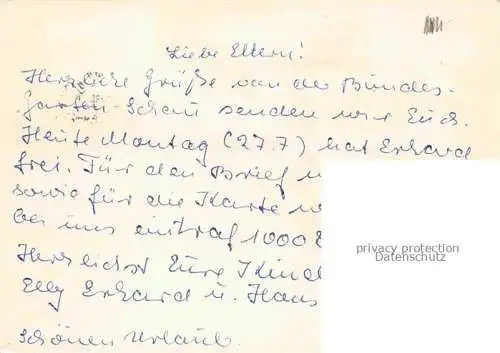 Liebe Eltern!
Herzliche Grüße von der Bundes-
garten-Schau senden wir Euch.
Heute Montag (27.7) hat Erhard
frei. Für den Brief
sowie für die Karte
bei uns eintraf 1000
privacy protection
Datenschutz
Herzlichst Eure Kind
Elly Erhard u. Hans
schönen Urlaub.